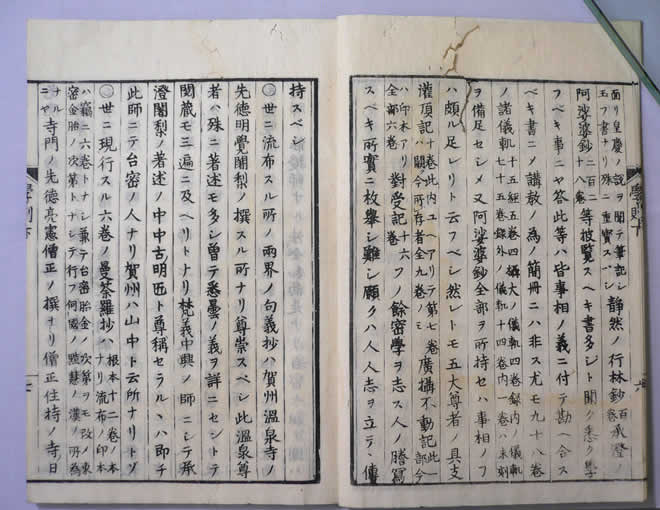 面リ皇慶ノ説ヲ聞テ筆記シ 静然ノ行林鈔百巻 承澄ノ
玉フ書ナリ殊ニ重寳スベシ
阿娑婆鈔二百二十八巻等披覧スヘキ書多シト聞ク悉ク學
フベキ事ニヤ答此等ハ皆事相ノ義ニ付テ勘ヘ合ス
ベキ書ニメ講敎ノ為ノ簡冊ニハ非ス尤モ九十八巻
ノ諸儀軌十五經五巻四攝大ノ儀軌四巻録内ノ儀軌七十五巻録外ノ儀軌十四巻内一巻ハ未刻
ヲ備足セシメ又阿娑婆鈔全部ヲ所持セハ事相ノフ
ハ頗ル足レリト云フベシ然レトモ五大尊者ノ具支
灌頂記十巻此内ユヘアリテ第七巻廣攝不動記此一部今
ハ印本アリ對受記十六フノ餘密學ヲ志ス人ノ謄寫
全部六巻
スベキ所實ニ枚舉シ難シ願クハ人人志ヲ立テ傳
持スベシ
○世ニ流布スル所ノ兩界ノ句義抄ハ賀州溫泉寺ノ
先德明覺闍梨ノ撰スル所ナリ尊崇スベシ此溫泉尊
者ハ殊ニ著述モ多シ曾テ悉曇ノ義ヲ詳ニセントテ
閲藏モ三遍ニ及ヘリトナリ梵義中興ノ師ニシテ承
澄闍梨ノ著述ノ中中古明匠ト尊稱セラルヽハ即チ
此師ニテ台密ノ人ナリ賀州ハ山中ト云所ナリトゾ
○世ニ現行スル六巻ノ曼荼羅抄ハ根本十二巻ノ本ナリ流布ノ印本
ハ竊ニ六巻トナシ兼テ台密胎金ノ次第ヲモ改メ東
密金胎ノ次第トナシテ行フ何國ノ
ナルニヤ寺門ノ先德亮憲僧正ノ撰ナリ僧正住持ノ寺日
學則下
六
學則下
七